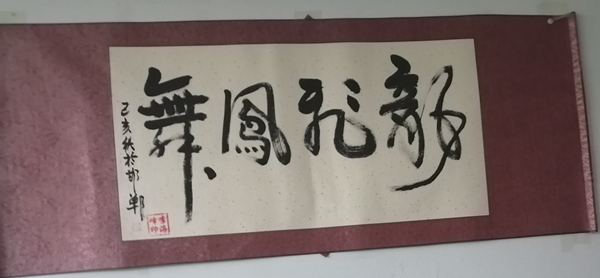 龍飛鳳舞
己亥秋於邯鄲